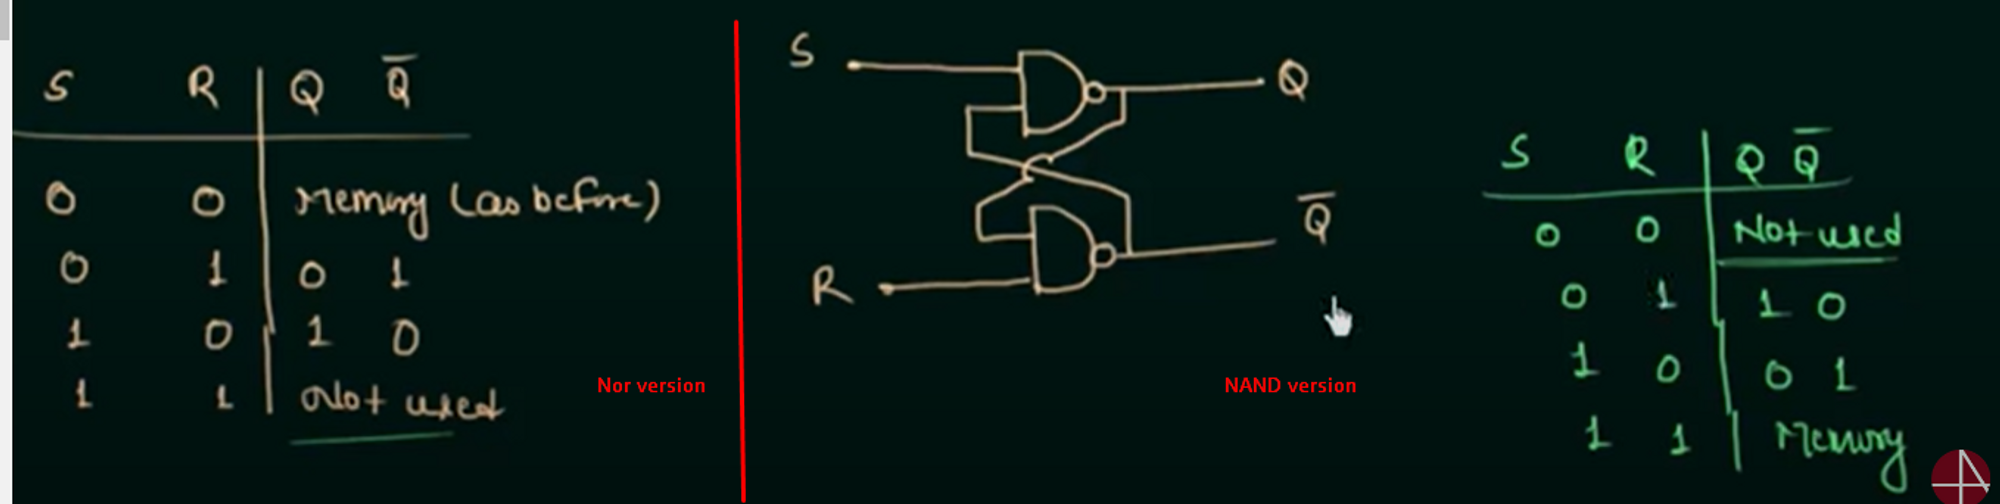 S R Q Q̅
0 0 Memory (as before)
0 1 0 1
1 0 1 0
1 1 Not used
Nor version
S
Q
Q̅
R
NAND version
S R Q Q̅
0 0 Not used
0 1 1 0
1 0 0 1
1 1 Memory